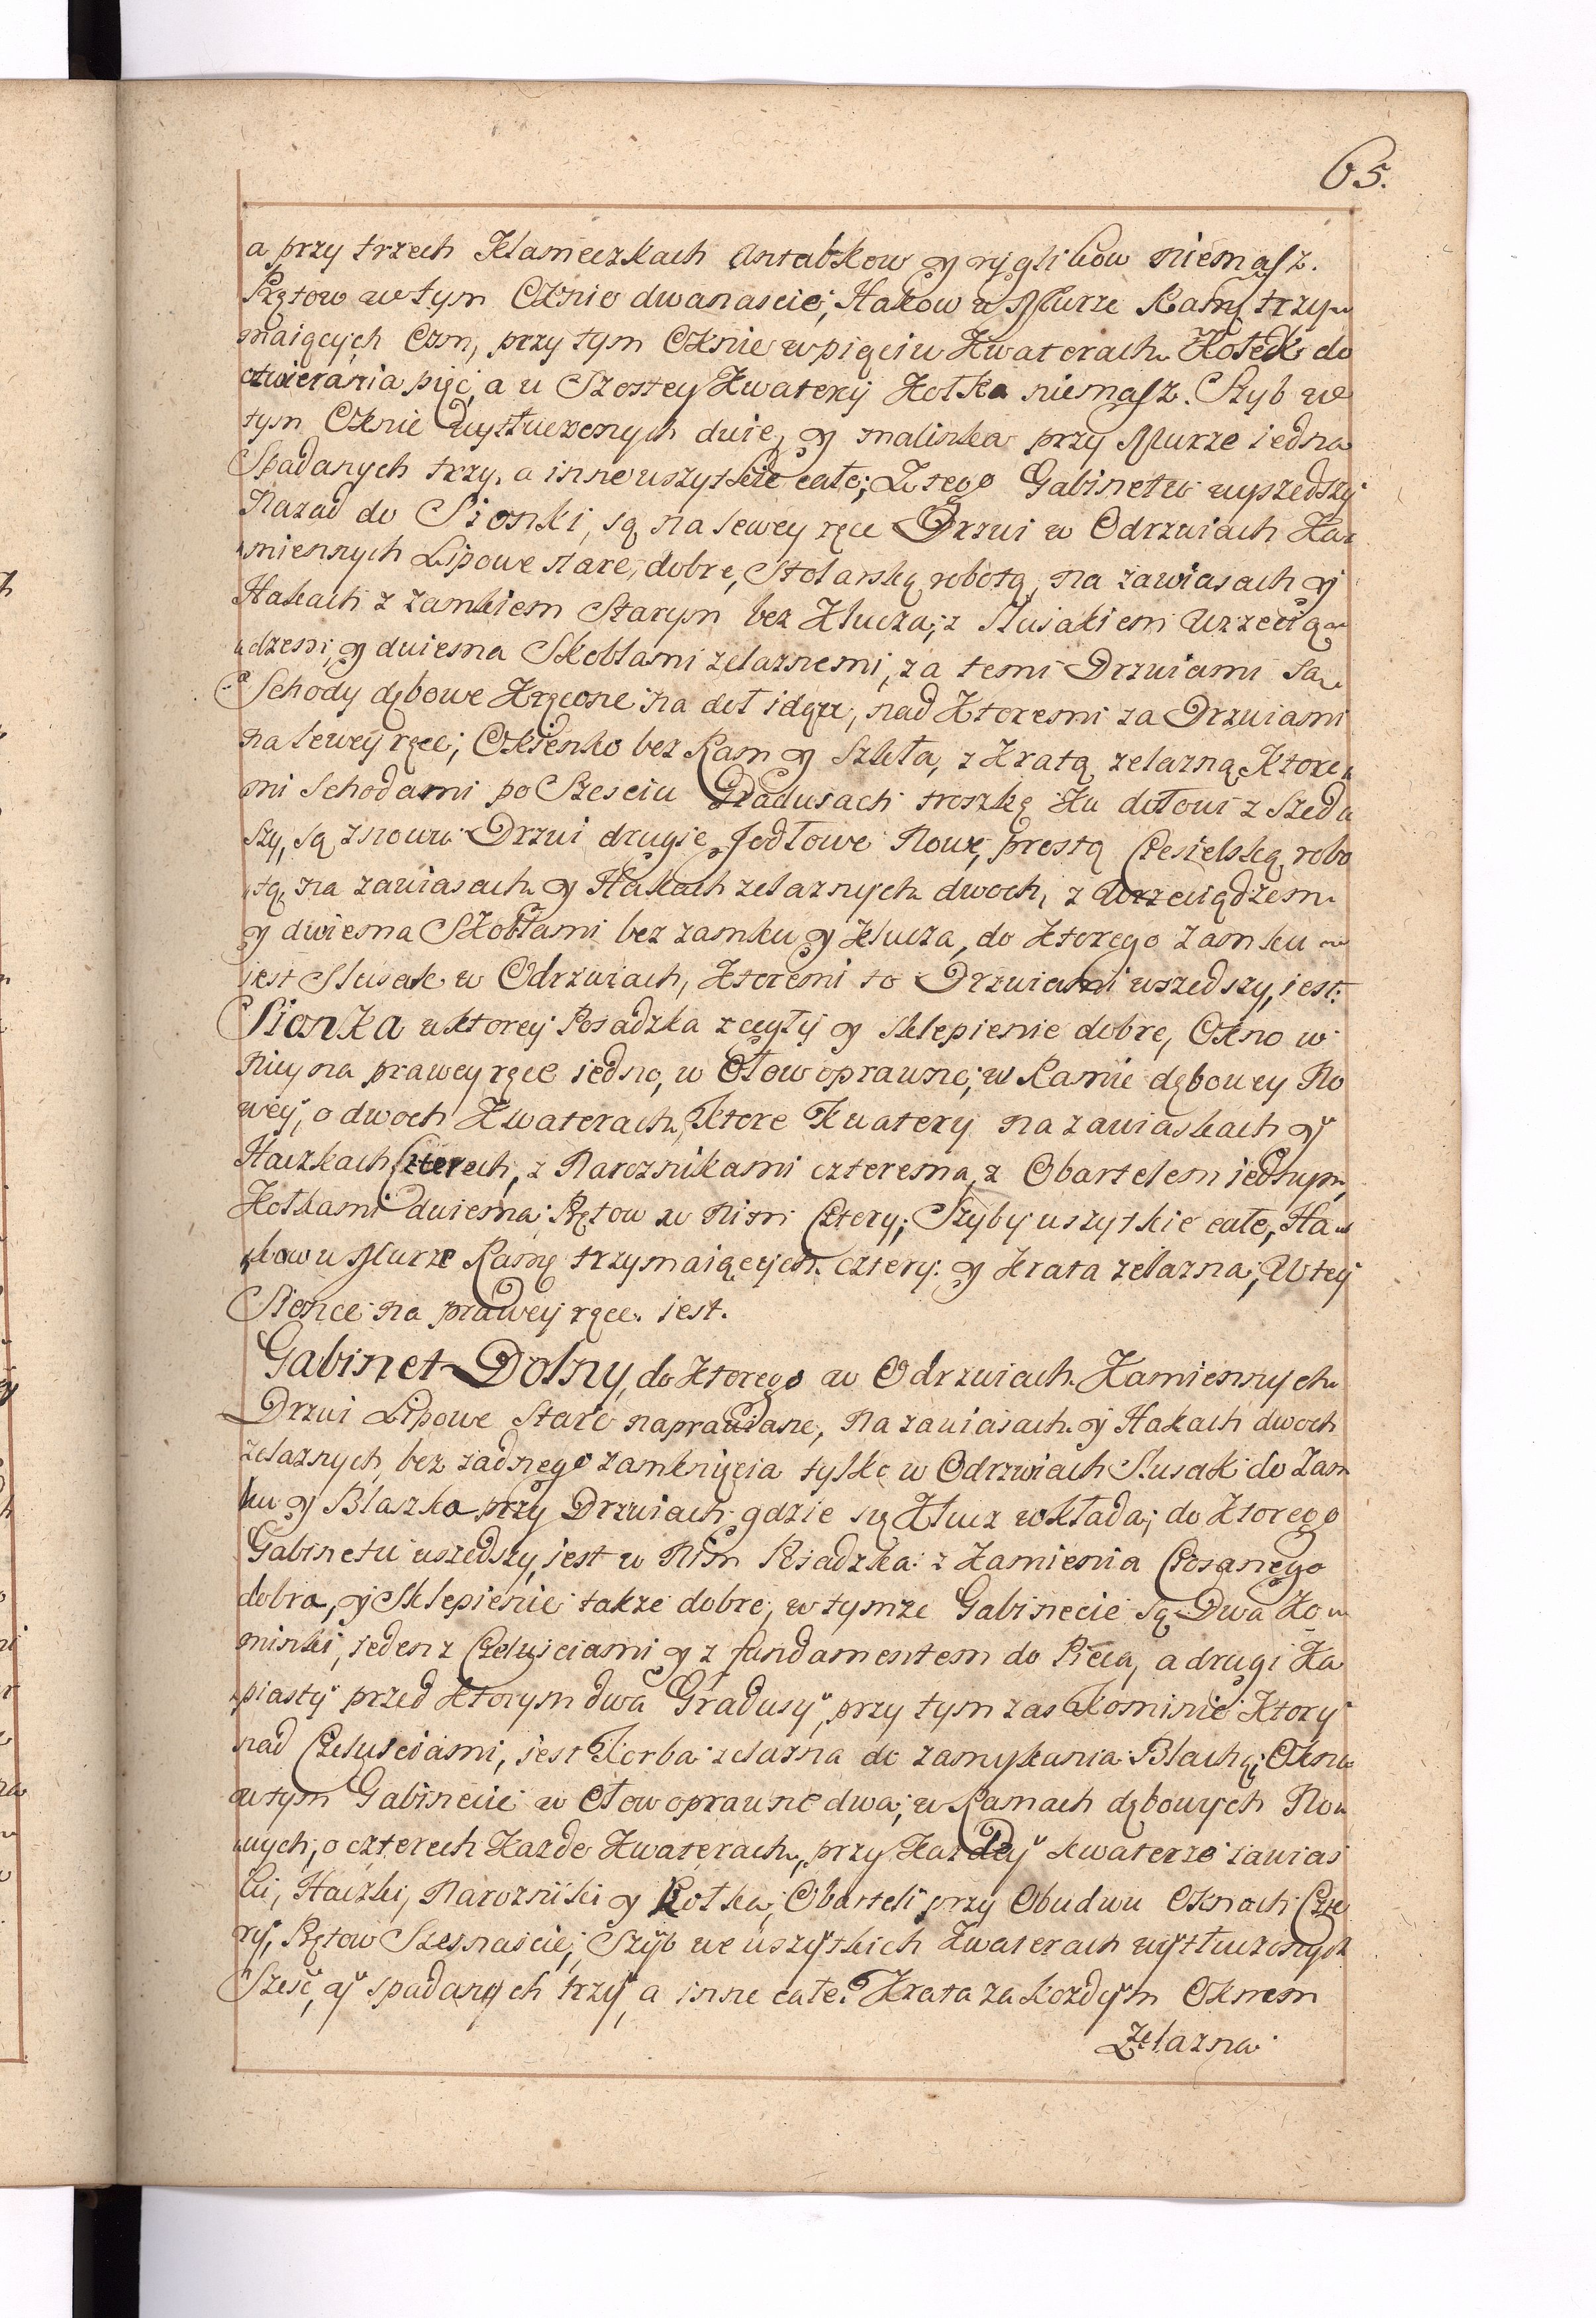 65.
a przy trzech Klameczkach Antabkow y ryglikow niemasz.
Prętow w tym Oknie dwanascie, Hakow w Murze Ramy trzy-
maiących Osm, przy tym Oknie w pięciu Kwaterach Kołek do
otwierania pięć, a u Szostey Kwatery Kołka niemasz. Szyb w
tym Oknie wytłuczonych dwie, y malinka przy Murze iedna
Spadanych trzy, a inne wszytkie całe; Z tego Gabinetu wyszedszy
Nazad do Sionki, są na lewey ręce Drzwi w Odrzwiach Ka-
miennych Lipowe stare, dobre, Stolarską robotą, na zawiasach y
Hakach z zamkiem Starym bez Klucza; z Slusakiem Wrzecią-
dzem, y dwiema Skoblami zelaznemi, za temi Drzwiami są
Schody dębowe Kręcone na doł idące, nad Ktoremi za Drzwiami
na lewey ręce; Okienko bez Ram y Szkła, z Kratą zelazną, Ktore-
mi Schodami po Szesciu Gradusach troszkę Ku dołowi z Szed-
szy, są znowu Drzwi drugie Jodłowe Nowe, prostą Ciesielską robo
tą, na zawiasach y Hakach zelaznych dwoch, z Wrzeciądzem
y dwiema Skoblami bez zamku y Klucza, do Ktorego Zamku
iest Slusak w Odrzwiach, Ktoremi to Drzwiami wszedszy, iest:
Sionka w Ktorey Posadzka z cegły y Sklepienie dobre, Okno w
Niey na prawey ręce iedno, w Ołow oprawne; w Ramie dębowey No
wey, o dwoch Kwaterach, Ktore Kwatery na zawiaskach y
Haczkach Czterech, z Naroznikami czterema, z Obartelem iednym,
Kołkami dwiema: Prętow w Nim Cztery; Szyby wszytkie całe, Ha-
kow w Murze Ramę trzymaiących cztery: y Krata zelazna; W tey
Sionce na prawey ręce. iest.
Gabinet Dolny, do Ktorego w Odrzwiach Kamiennych
Drzwi Lipowe Stare naprawiane, na zawiasach y Hakach dwoch
zelaznych, bez zadnego zamknięcia tylko w Odrzwiach Slusak do Zam
ku y Blaszka przy Drzwiach gdzie się Klucz wkłada; do Ktorego
Gabinetu wszedszy, iest w Nim Posadzka z Kamienia Ciosanego
dobra, y Sklepienie takze dobre, w tymze Gabinecie są Dwa Ko-
minki, ieden z Czelusciami y z fundamentem do Pieca, a drugi Ka
piasty przed Ktorym dwa Gradusy, przy tym zas Kominie Ktory
nad Czelusciami, iest Korba zelazna do zamykania Blachą; Okna
w tym Gabinecie w Ołow oprawne dwa; w Ramach dębowych No-
wych, o czterech Kazde Kwaterach, przy Kazdey kwaterze zawias
ki, Haczki, Narozniki y Kołka, Obarteli przy Obudwu Oknach Czte
ry, Prętow Szesnascie; Szyb we wszytkich Kwaterach wytłuczonych
Szesć, y spadanych trzy, a inne całe. Krata za kozdym Oknem
Zelazna